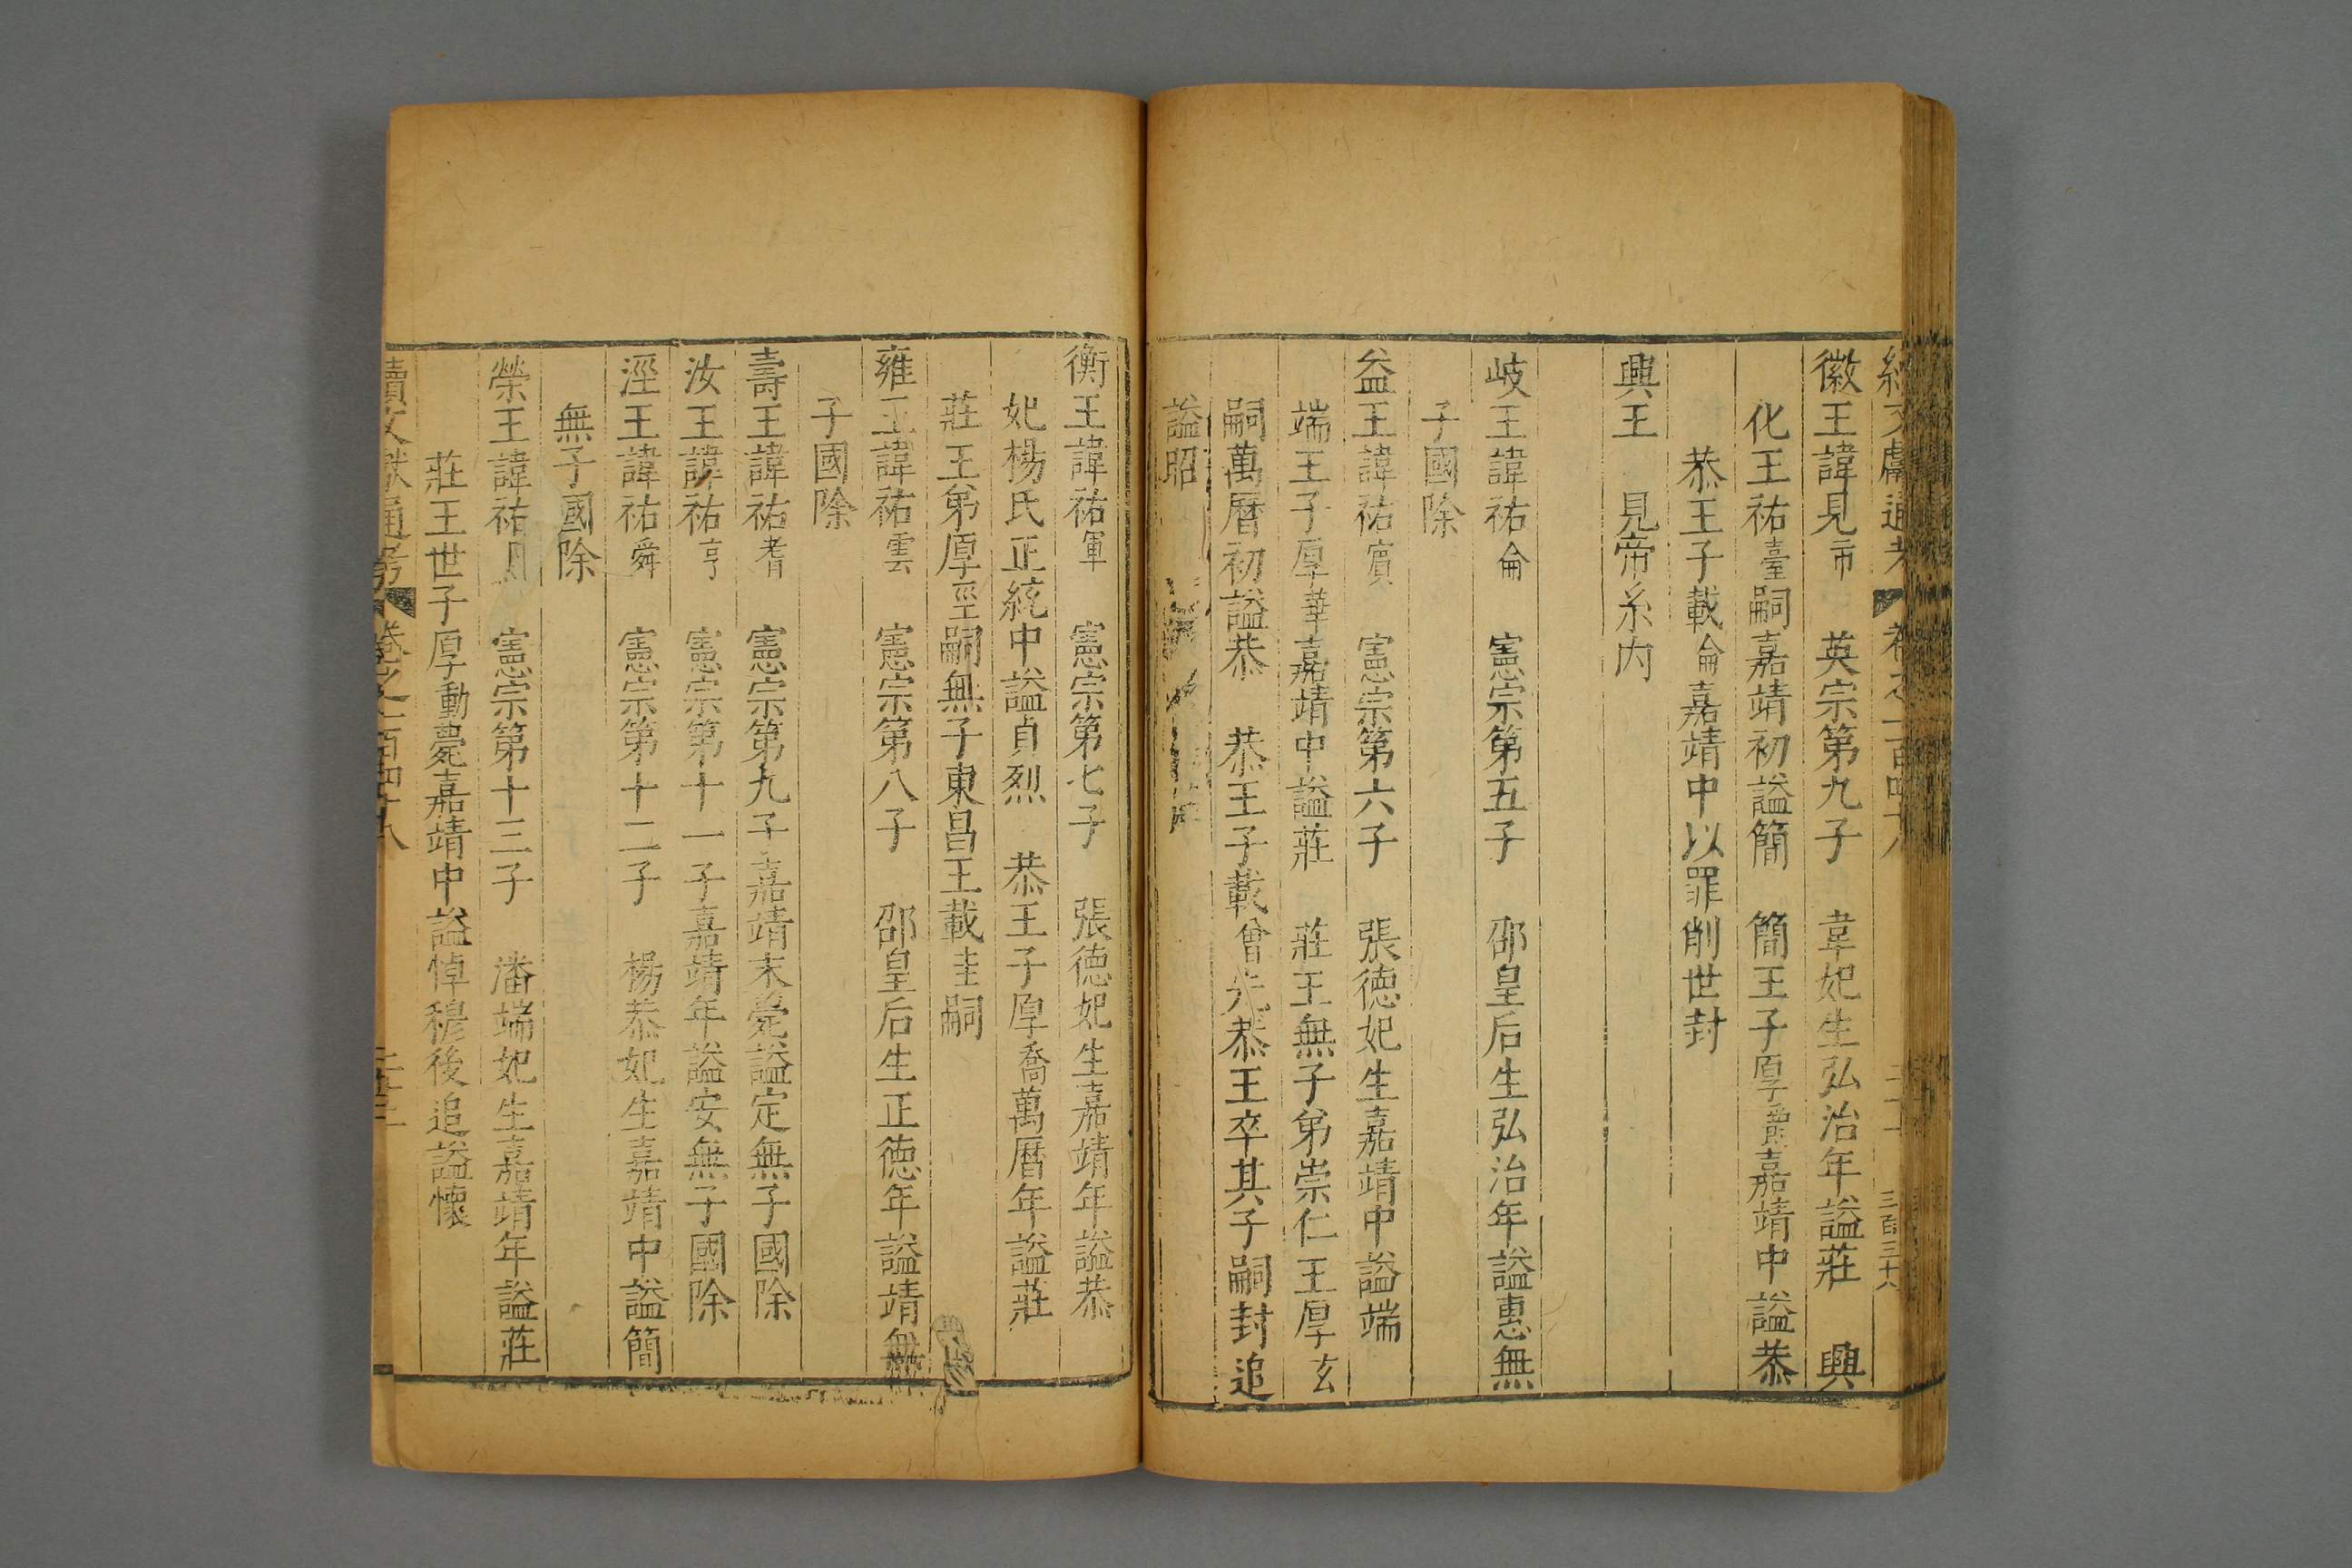 徽王諱見市　英宗第九子　韋妃生弘治年謚莊　興
化王祐臺嗣嘉靖初謚簡　簡王子厚爵嘉靖中謚恭
恭王子載侖嘉靖中以罪削世封
興王　見帝系内
岐王諱祐侖　憲宗第五子　邵皇后生弘治年謚惠無
子國除
益王諱祐賓　憲宗第六子　張德妃生嘉靖中謚端
端王子厚華嘉靖中謚莊　莊王無子弟崇仁王厚玄
嗣萬曆初謚恭　恭王子載曾先恭王卒其子嗣封追
謚昭
衡王諱祐軍　憲宗第七子　張德妃生嘉靖年謚恭
妃楊氏正統中謚貞烈　恭王子厚喬萬曆年謚莊
莊王弟厚巠嗣無子東昌王載圭嗣
雍王諱祐雲　憲宗第八子　邵皇后生正德年謚靖無
子國除
壽王諱祐耆　憲宗第九子嘉靖末薨謚定無子國除
汝王諱祐亨　憲宗第十一子嘉靖年謚安無子國除
涇王諱祐舜　憲宗第十二子　楊恭妃生嘉靖中謚簡
無子國除
榮王諱祐　憲宗第十三子　潘端妃生嘉靖年謚莊
莊王世子厚勳薨嘉靖中謚悼穆後追謚懷
續文獻通考　卷之二百四十八